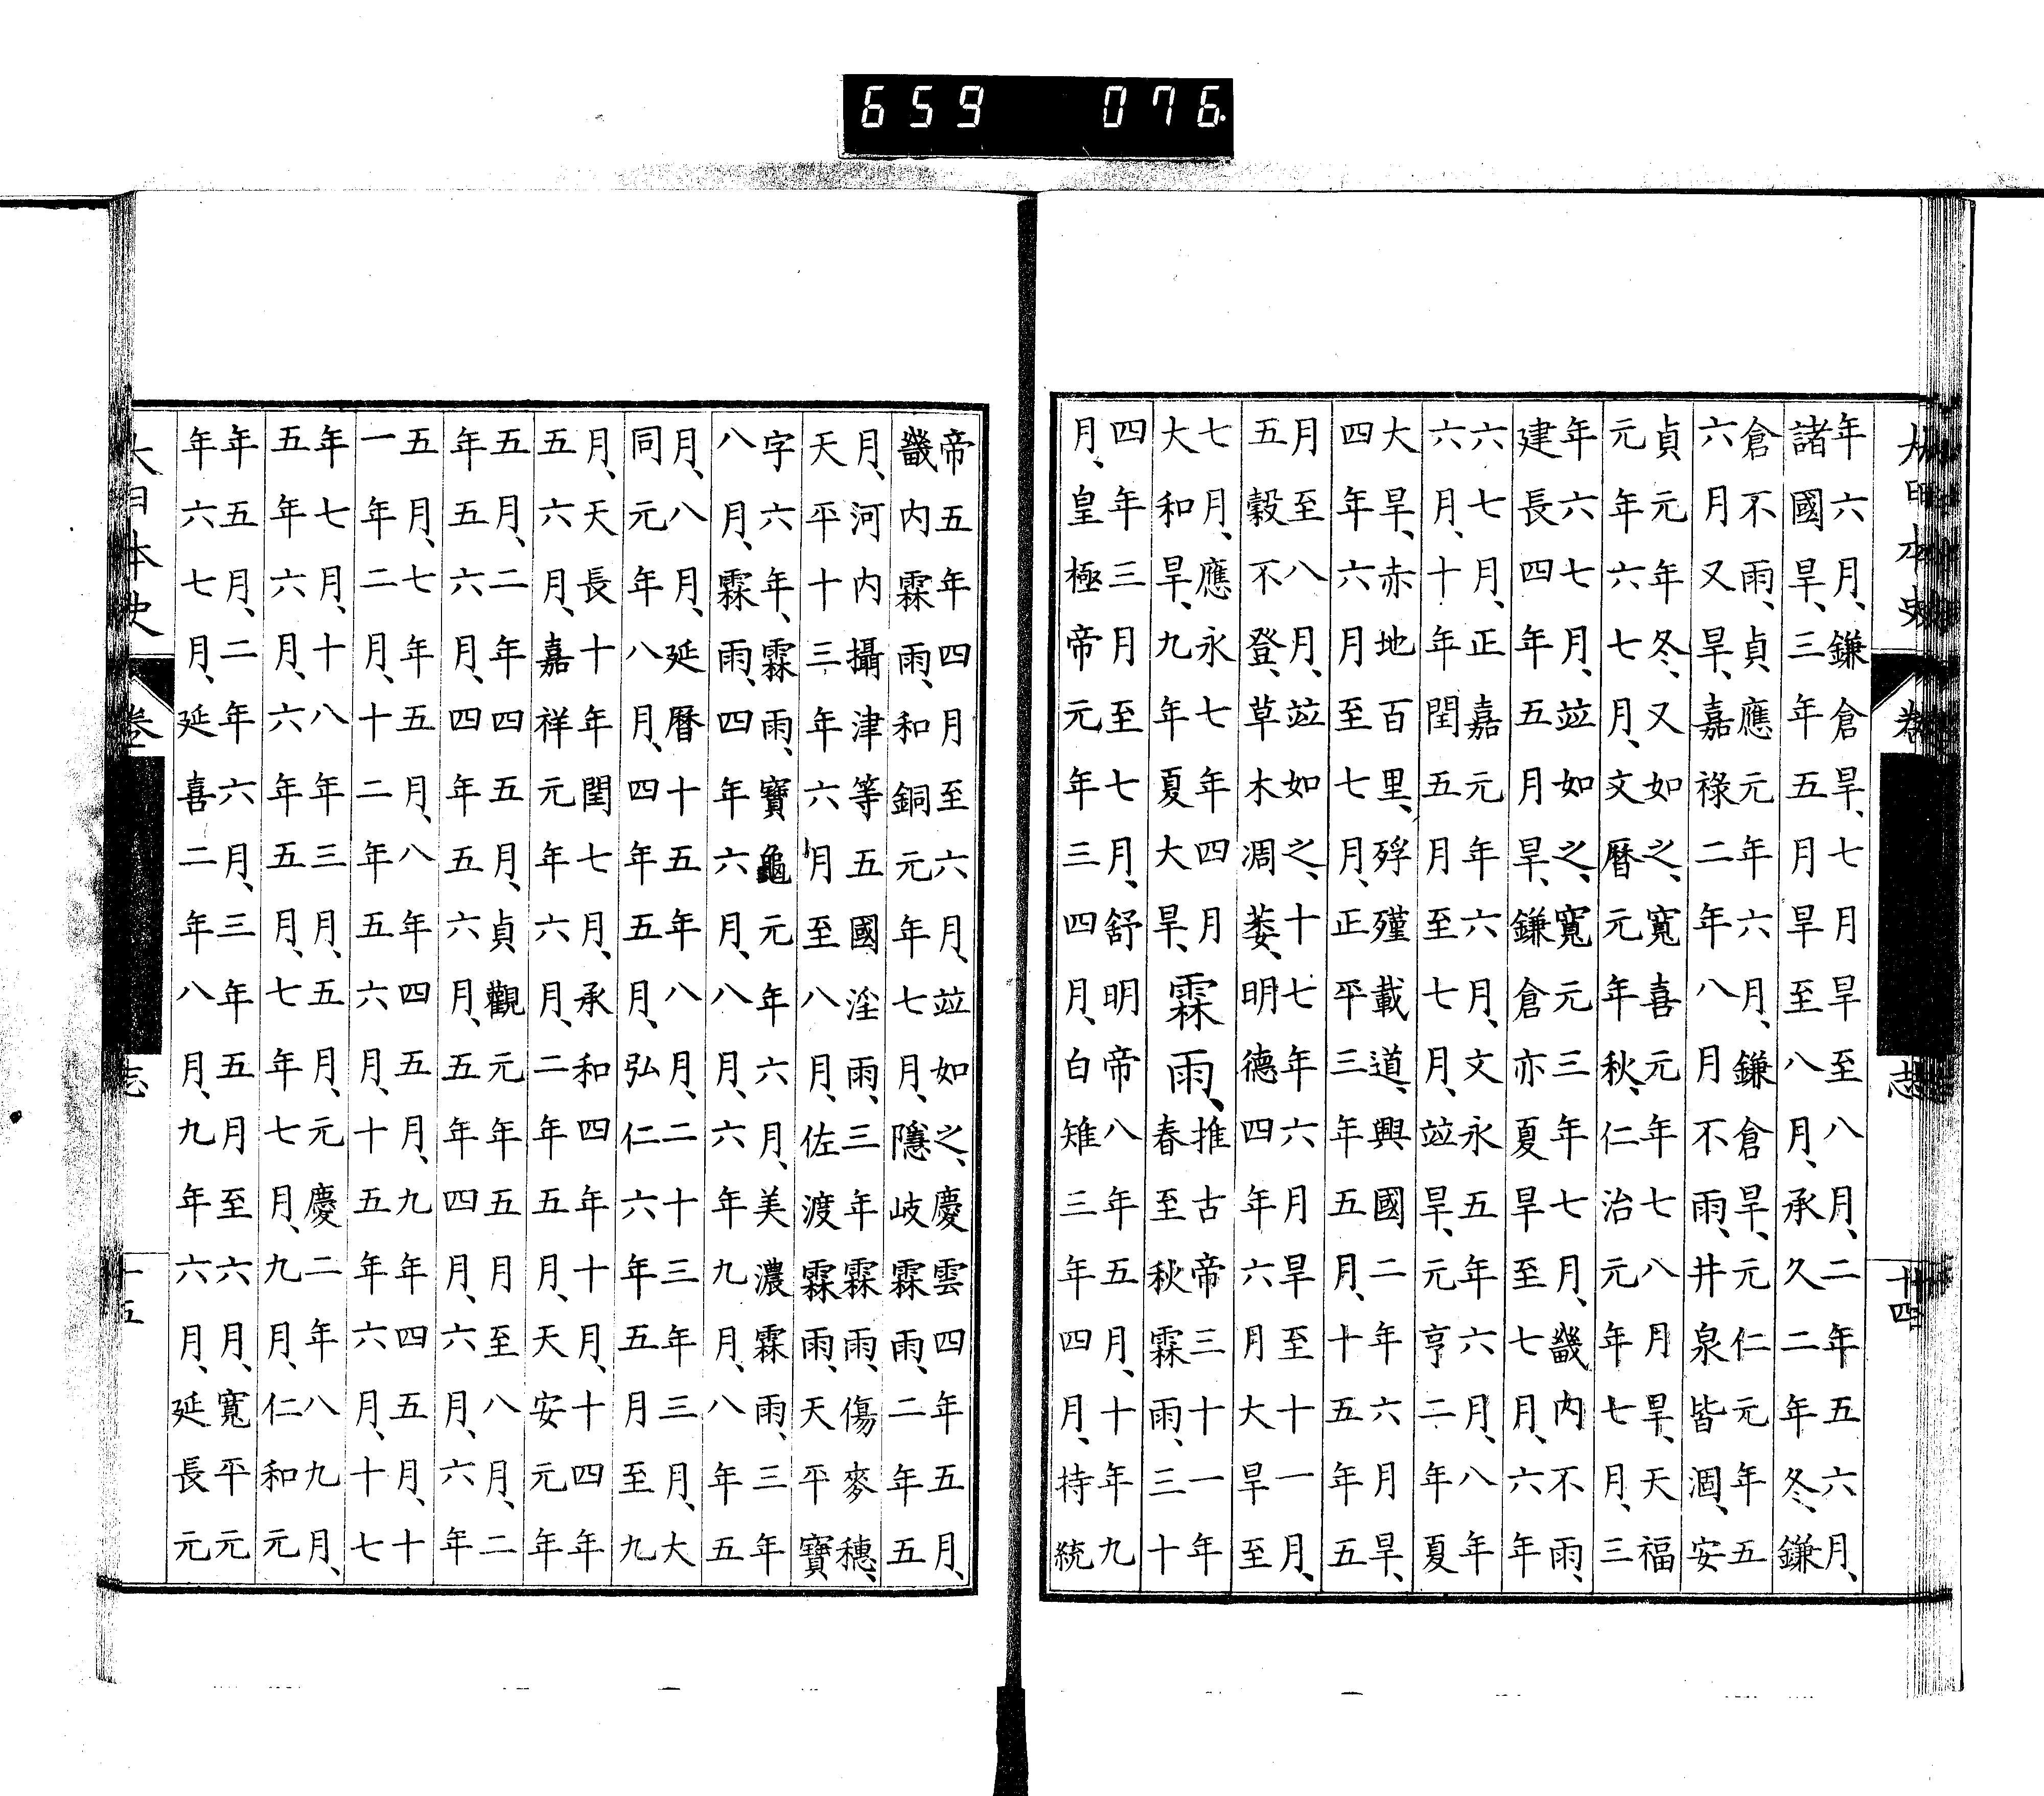 659 076
大日本史 卷 志 十四
年六月、鎌倉旱、七月旱至八月、二年五六月、
諸國旱、三年五月旱至八月、承久二年冬、鎌
倉不雨、貞應元年六月、鎌倉旱、元仁元年五
六月又旱、嘉祿二年八月不雨、井泉皆涸、安
貞元年冬、又如之、寬喜元年七八月旱、天福
元年六七月、文曆元年秋、仁治元年七月、三
年六七月、竝如之、寬元三年七月、畿內不雨、
建長四年五月旱、鎌倉亦夏旱至七月、六年
六七月、正嘉元年六月、文永五年六月、八年
六月、十年閏五月至七月、竝旱、元亨二年夏
大旱、赤地百里、殍殣載道、興國二年六月旱、
四年六月至七月、正平三年五月、十五年五
月至八月、竝如之、十七年六月旱至十一月、
五穀不登、草木凋萎、明德四年六月大旱至
七月、應永七年四月
大和旱、九年夏大旱、
霖雨、
推古帝三十一年
春至秋霖雨、三十
四年三月至七月、舒明帝八年五月、十年九
月、皇極帝元年三四月、白雉三年四月、持統
帝五年四月至六月、竝如之、慶雲四年五月、
畿內霖雨、和銅元年七月、隱岐霖雨、二年五
月、河內攝津等五國淫雨、三年霖雨、傷麥穗、
天平十三年六月至八月、佐渡霖雨、天平寶
字六年、霖雨、寶龜元年六月、美濃霖雨、三年
八月、霖雨、四年六月、八月、六年九月、八年五
月、八月、延曆十五年八月、二十三年三月、大
同元年八月、四年五月、弘仁六年五月至九
月、天長十年閏七月、承和四年十月、十四年
五六月、嘉祥元年六月、二年五月、天安元年
五月、二年四五月、貞觀元年五月至八月、二
年五六月、四年五六月、五年四月、六月、六年
五月、七年五月、八年四五月、九年四五月、十
一年二月、十二年五六月、十五年六月、十七
年七月、十八年三月、五月、元慶二年八九月、
五年六月、六年五月、七年七月、九月、仁和元
年五月、二年六月、三年五月至六月、寬平元
年六七月、延喜二年八月、九年六月、延長元
大日本史 卷 志 十五